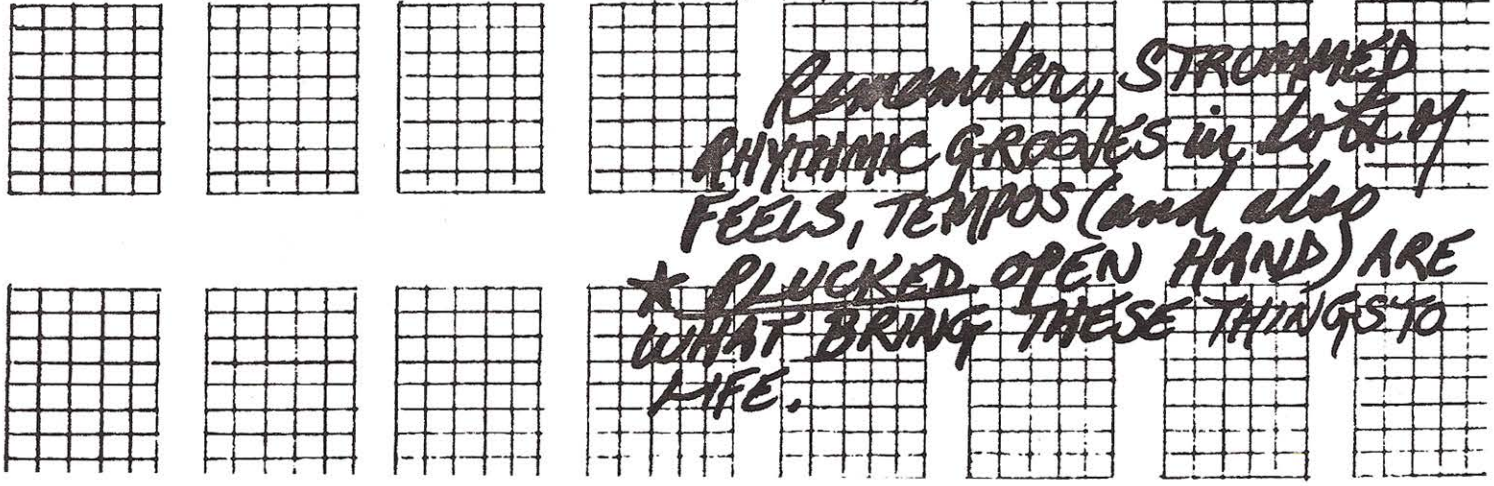 Remember, STRUMMED
RHYTHMIC GROOVES in lots of
FEELS, TEMPOS (and also
★ PLUCKED OPEN HAND) ARE
WHAT BRING THESE THINGS TO
LIFE.